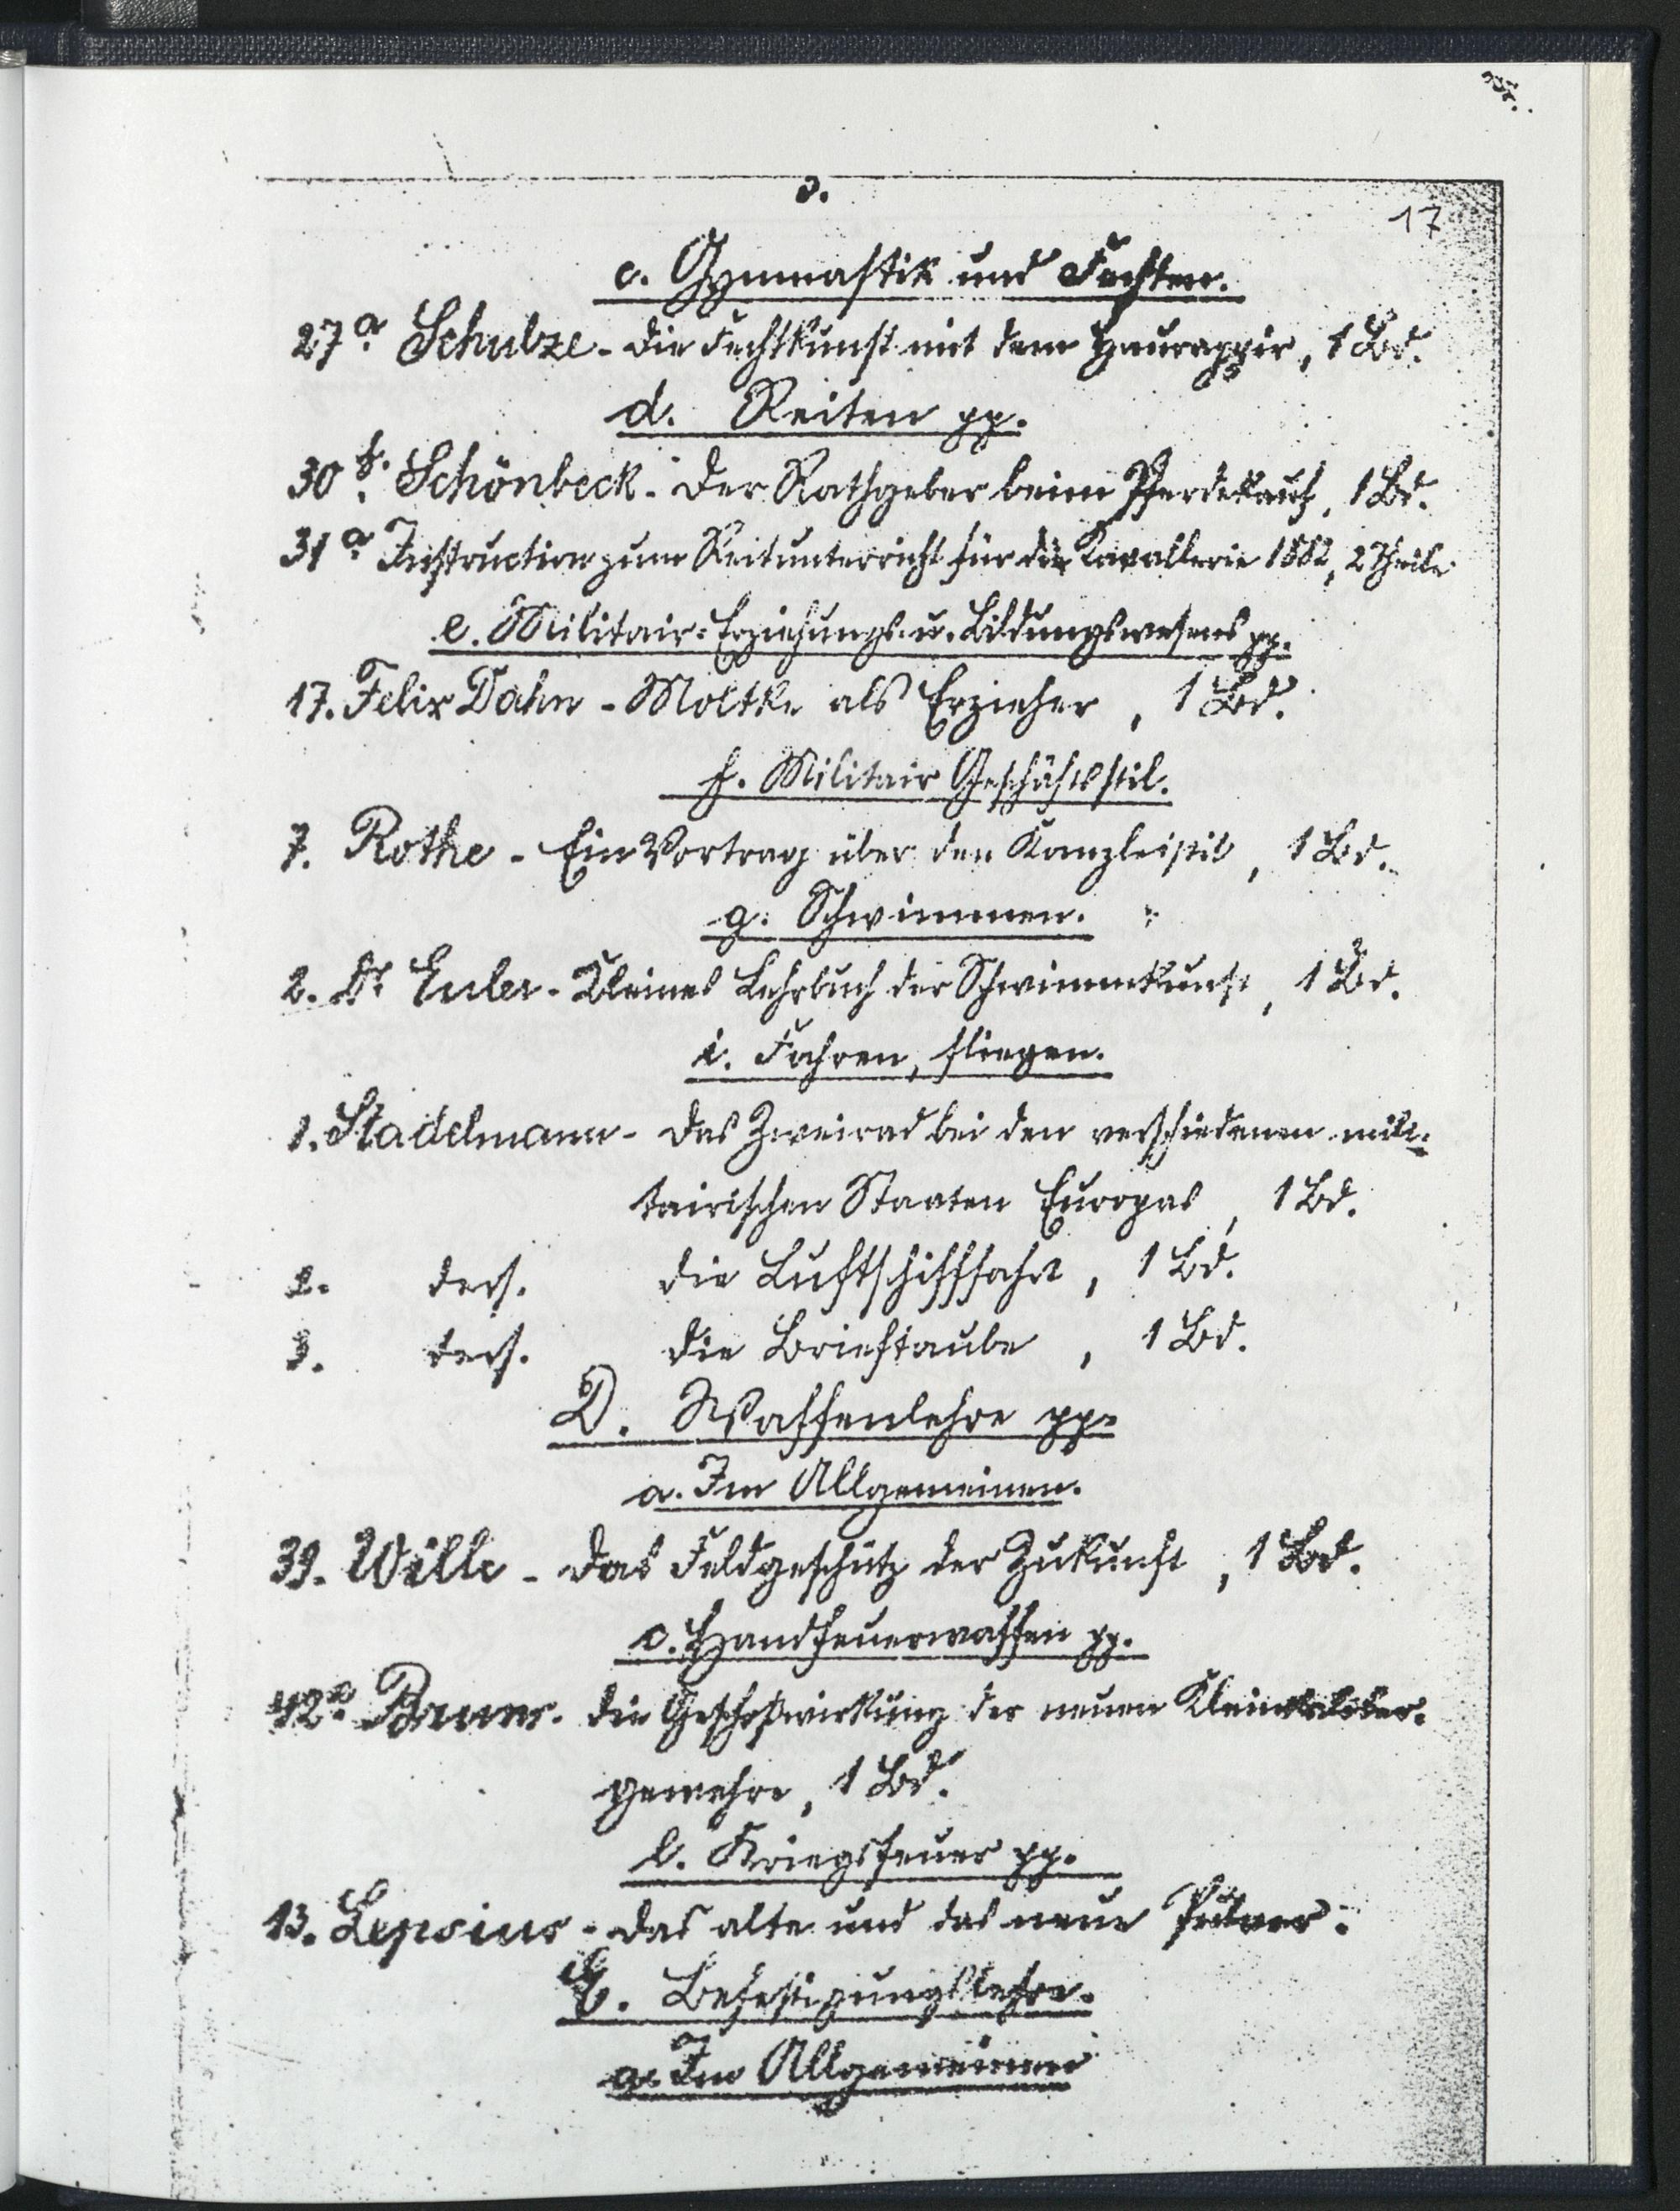 3.
17
c. Gymnastik und Fechten.
27a. Schulze - Die Fechtkunst mit dem Haurappir, 1 Bd.
d. Reiten pp.
30f. Schönbeck - Der Rathgeber beim Pferdekauf, 1 Bd.
31a. Instruction zum Reitunterricht für die Kavallerie 1882, 2 Theile
e. Militair-Erziehungs- u. Bildungswesens pp.
17. Felix Dahn - Moltke als Erzieher, 1 Bd.
f. Militair Geschäftsstil.
7. Rothe - Ein Vortrag über den Kanzleistil, 1 Bd.
g. Schwimmen.
2. Dr Euler - Kleines Lehrbuch der Schwimmkunst, 1 Bd.
i. Fahren, fliegen.
1. Stadelmann - Das Zweirad bei den verschiedenen mili-
tairischen Staaten Europas, 1 Bd.
2. ders. die Luftschifffahrt, 1 Bd.
3. ders. die Brieftaube, 1 Bd.
D. Waffenlehre pp.
a. Im Allgemeinen.
39. Wille - Das Feldgeschütz der Zukunft, 1 Bd.
c. Handfeuerwaffen pp.
42a. Bruns. die Geschoßwirkung der neuen Kleinkaliber-
gewehre, 1 Bd.
l. Kriegsfeuer pp.
13. Lepsius - Das alte und das neue Pulver.
E. Befestigungslehre.
a. Im Allgemeinen